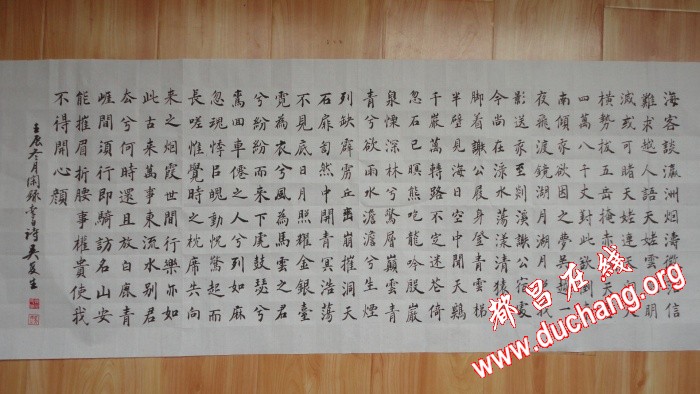 海客談瀛洲烟濤微茫信
難求越人語天姥雲霓明
滅或可睹天姥連天天
橫勢拔五岳掩赤天
四萬八千丈對此欲倒
南傾我欲因之夢吳越一
夜飛渡鏡湖月湖月我
影送我至剡溪謝公宿處
今尚在淥水蕩漾清猿
脚着謝公屐身登青雲梯
半壁見海日空中聞天鷄
千巖萬轉路不定迷花倚
忽石已暝熊咆龍吟殷巖
泉慄深林兮驚層巔雲青
青兮欲雨水澹澹兮生煙
列缺霹靂丘巒崩摧洞天
石扉訇然中開青冥浩蕩
不見底日月照耀金銀臺
霓為衣兮風為馬雲之君
兮紛紛而來下虎鼓瑟兮
鸞回車仙之人兮列如麻
忽魂悸㠯魄動怳驚起而
長嗟惟覺時之枕席失向
來之烟霞世間行樂亦如
此古來萬事東流水別君
去兮何時還且放白鹿青
崖間須行即騎訪名山安
能摧眉折腰事權貴使我
不得開心顏
壬辰冬月閑錄李白詩
都昌在线
www.duchang.org